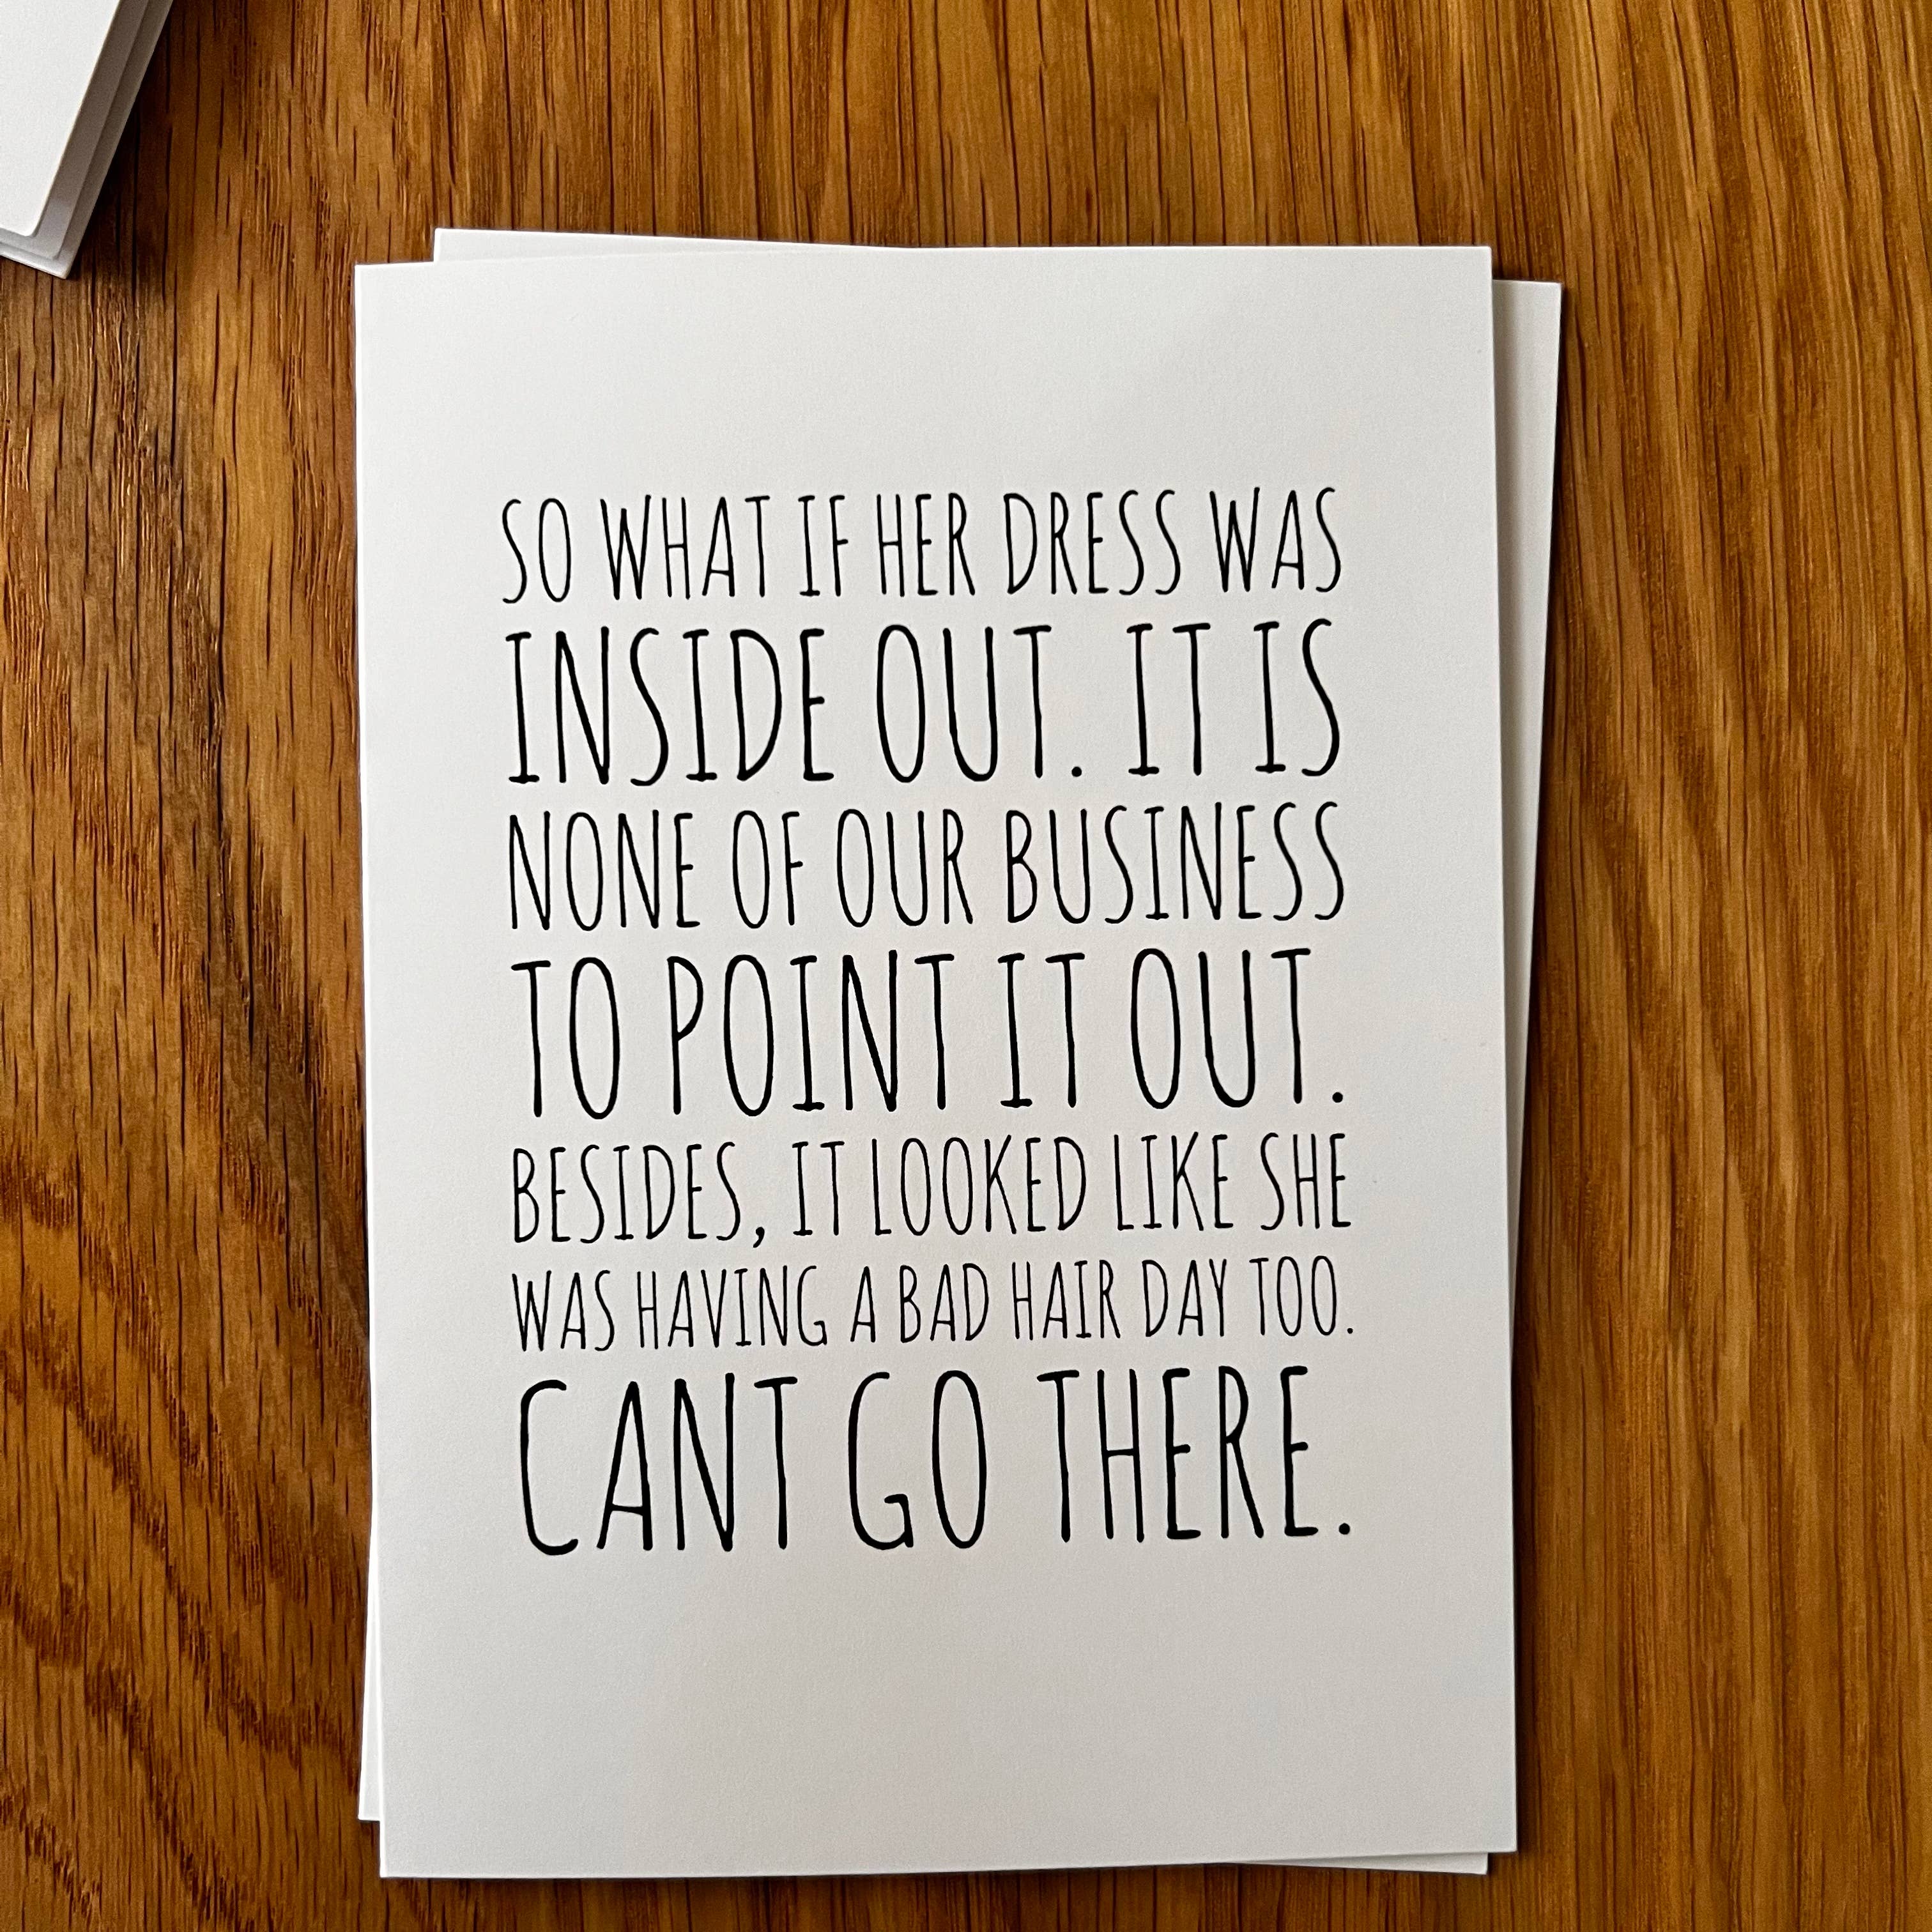 SO WHAT IF HER DRESS WAS
INSIDE OUT. IT IS
NONE OF OUR BUSINESS
TO POINT IT OUT.
BESIDES, IT LOOKED LIKE SHE
WAS HAVING A BAD HAIR DAY TOO.
CANT GO THERE.